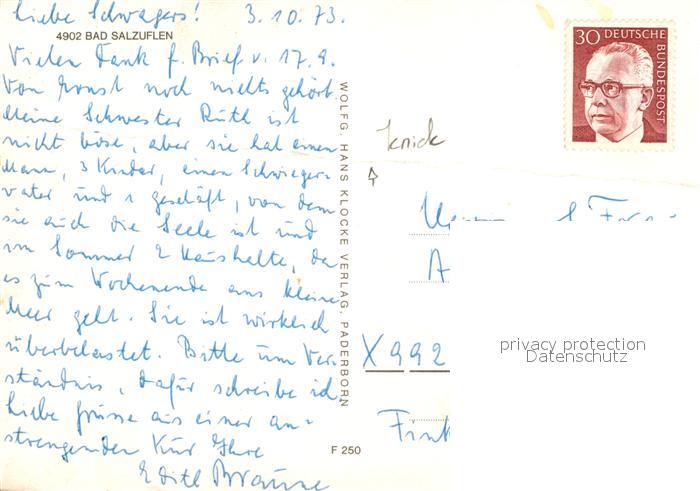 Liebe Schwagers! 3.10.73.
4902 BAD SALZUFLEN
Vielen Dank f. Brief v. 17.9.
Von Horst noch nichts gehört.
Meine Schwester Ruth ist
nicht böse, aber sie hat einen
Mann, 3 Kinder, einen Schwieger-
vater und 1 Geschäft, von dem
sie auch die Seele ist und
im Sommer 2 Haushalte, da
es zum Wochenende ans kleine
Meer geht. Sie ist wirklich
überbelastet. Bitte um Ver-
ständnis, dafür schreibe ich
liebe Grüsse aus einer an-
strengenden Kur Ihre
Edith
WOLFG. HANS KLOCKE VERLAG, PADERBORN
F 250
30 DEUTSCHE
BUNDESPOST
Knick
X992
privacy protection
Datenschutz